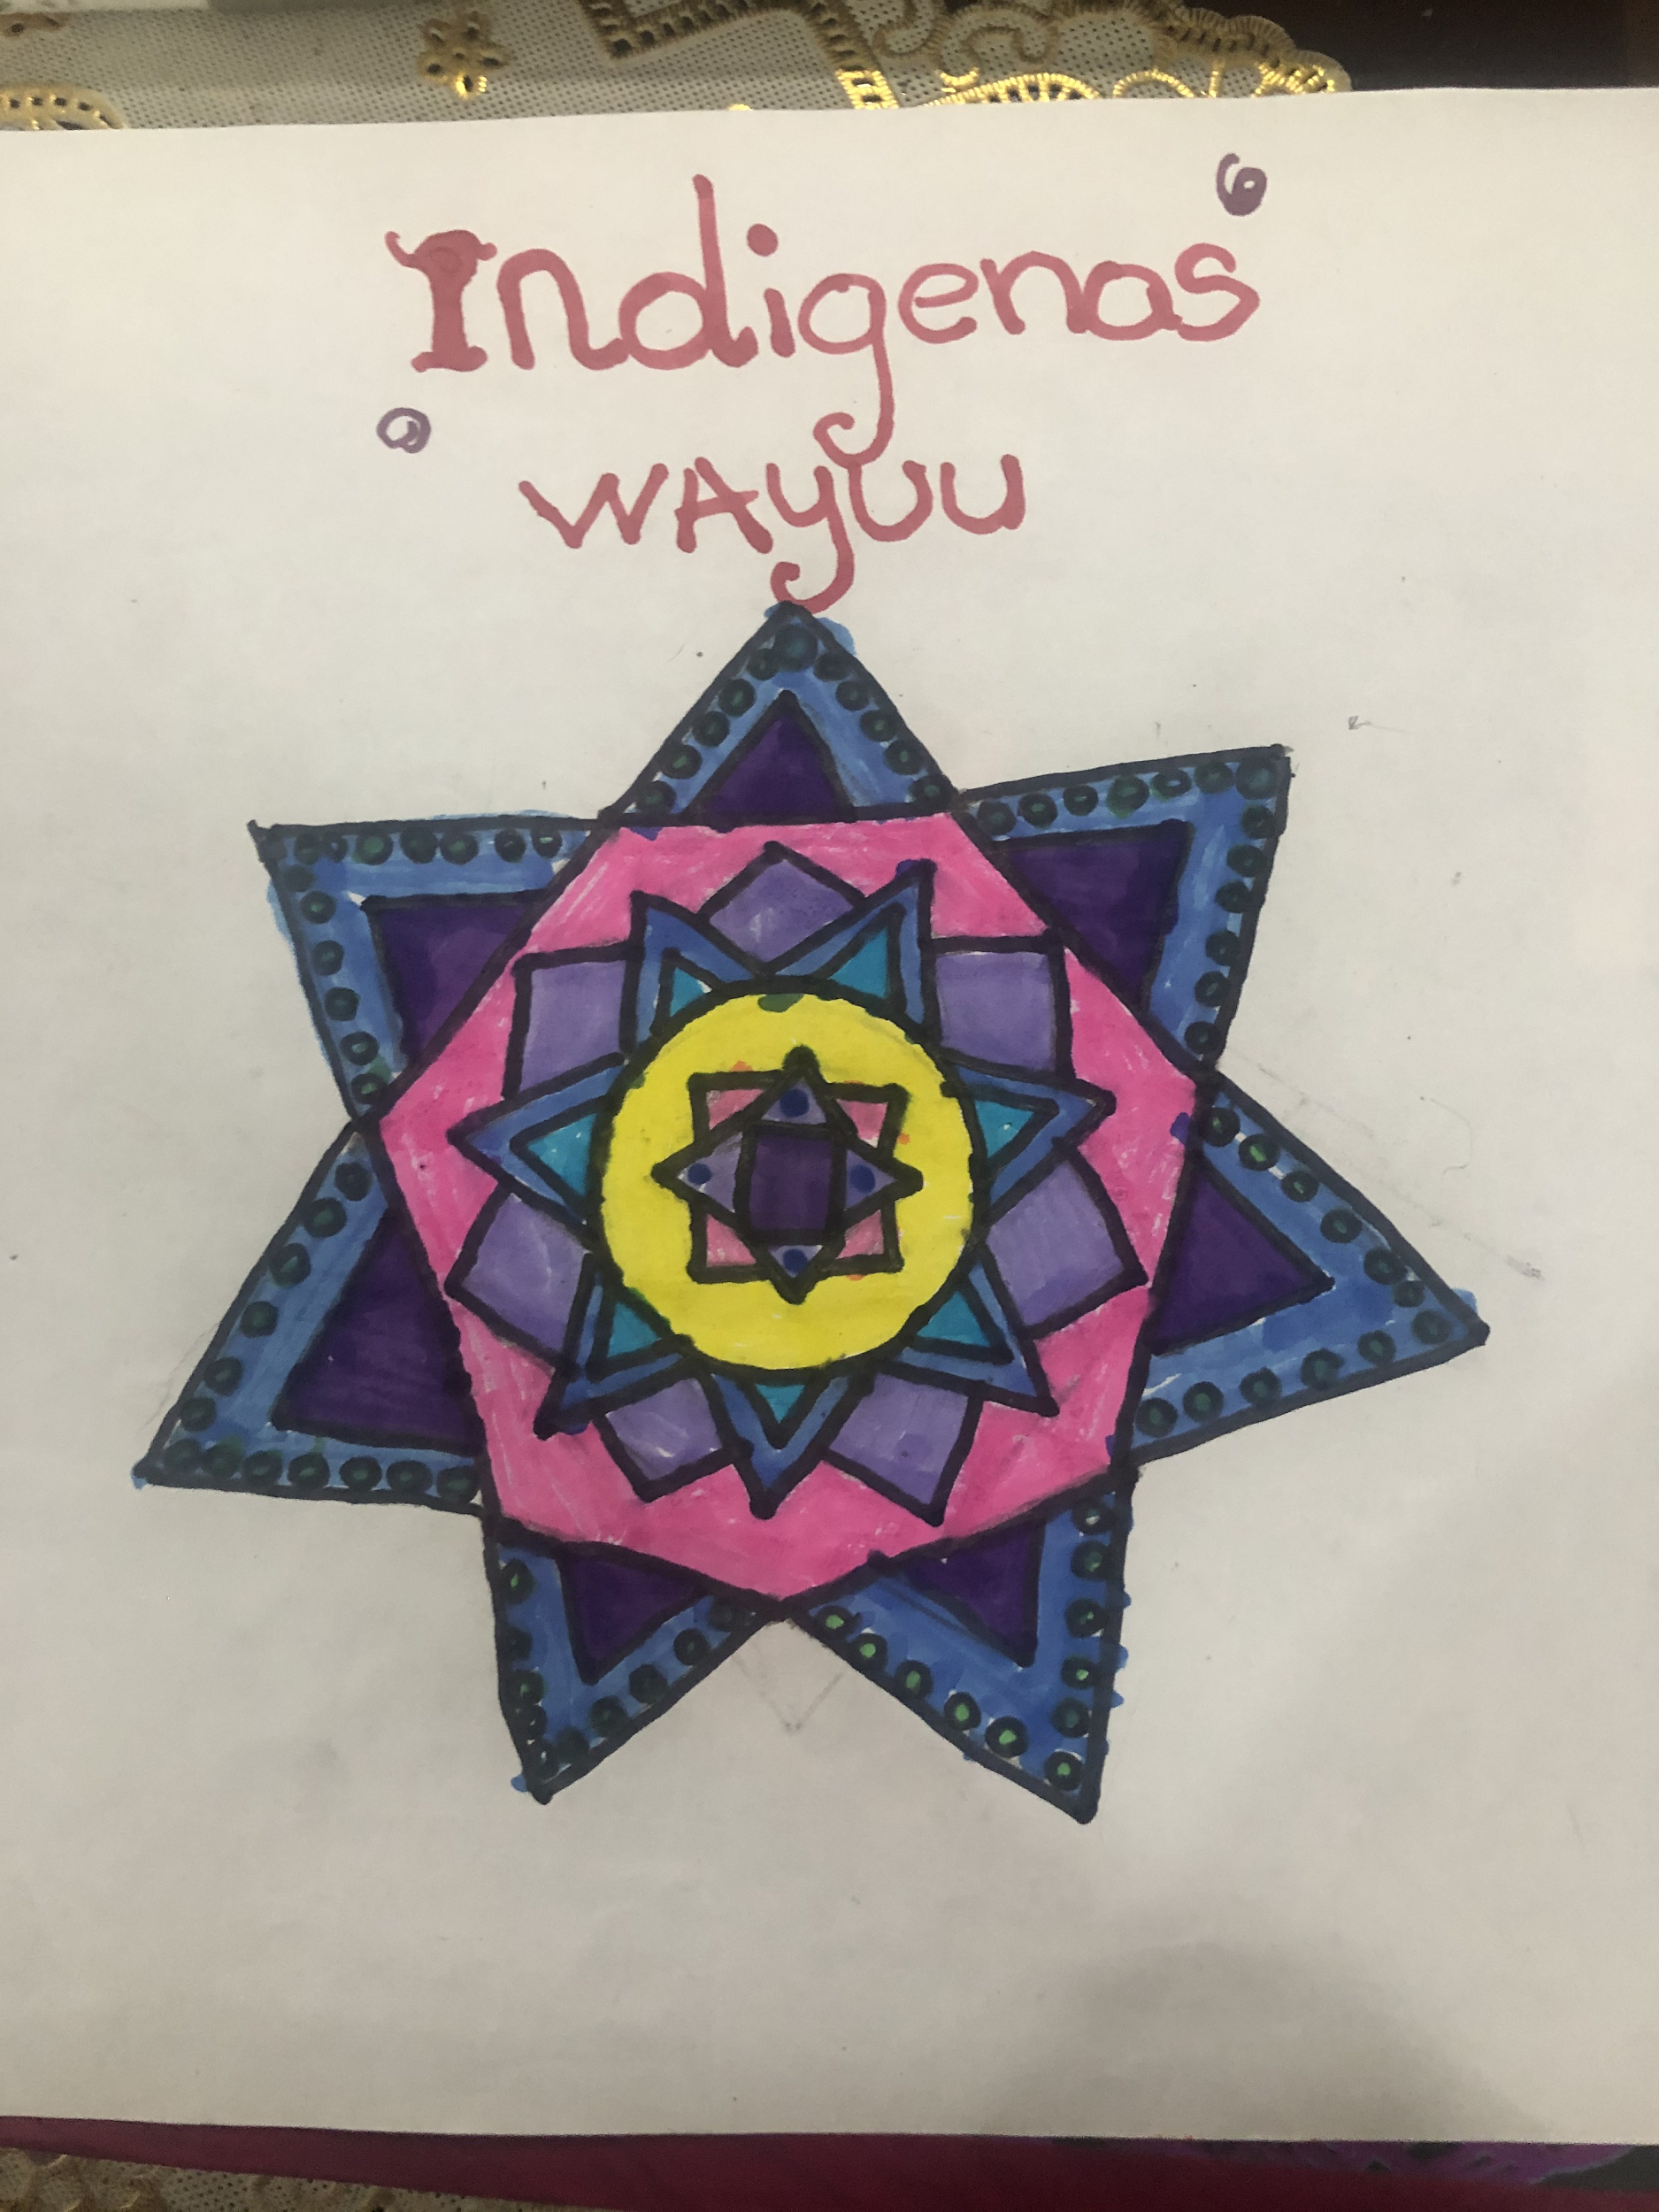 Indigenas
WAyuu